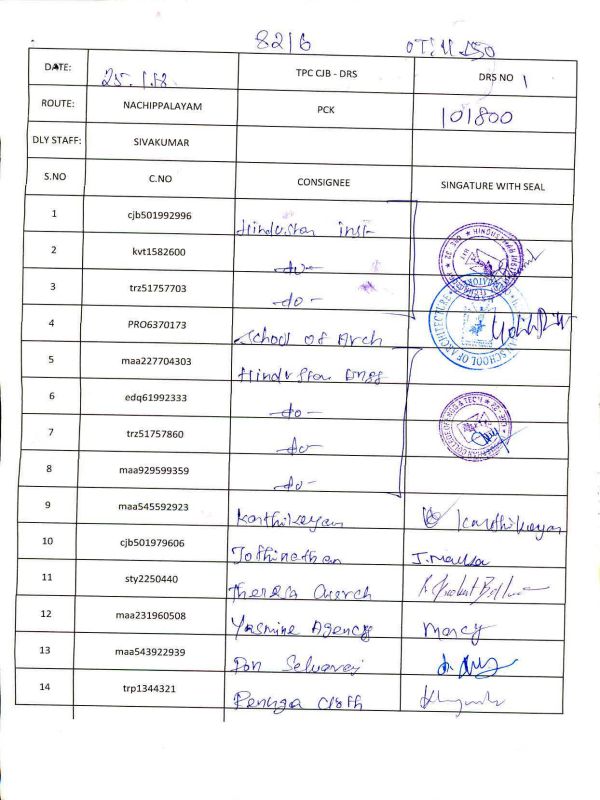 8216
DATE: 25.1.18 TPC CJB - DRS DRS NO 1
ROUTE: NACHIPPALAYAM PCK 101800
DLY STAFF: SIVAKUMAR
S.NO C.NO CONSIGNEE SINGATURE WITH SEAL
1 cjb501992996 Hindustan inst-
2 kvt1582600 -do-
3 trz51757703 -do-
4 PRO6370173 School of Arch
SCHOOL OF ARCHITECTURE
5 maa227704303 Hindustan Engg
6 edq61992333 -do-
7 trz51757860 -do-
8 maa929599359 -do-
9 maa545592923 Karthikeyan Karthikeyan
10 cjb501979606 Jothinathan
11 sty2250440 Theresa Church
12 maa231960508 Yasmine Agency mercy
13 maa543922939 Pon Selvaraj
14 trp1344321 Renuga Cloth